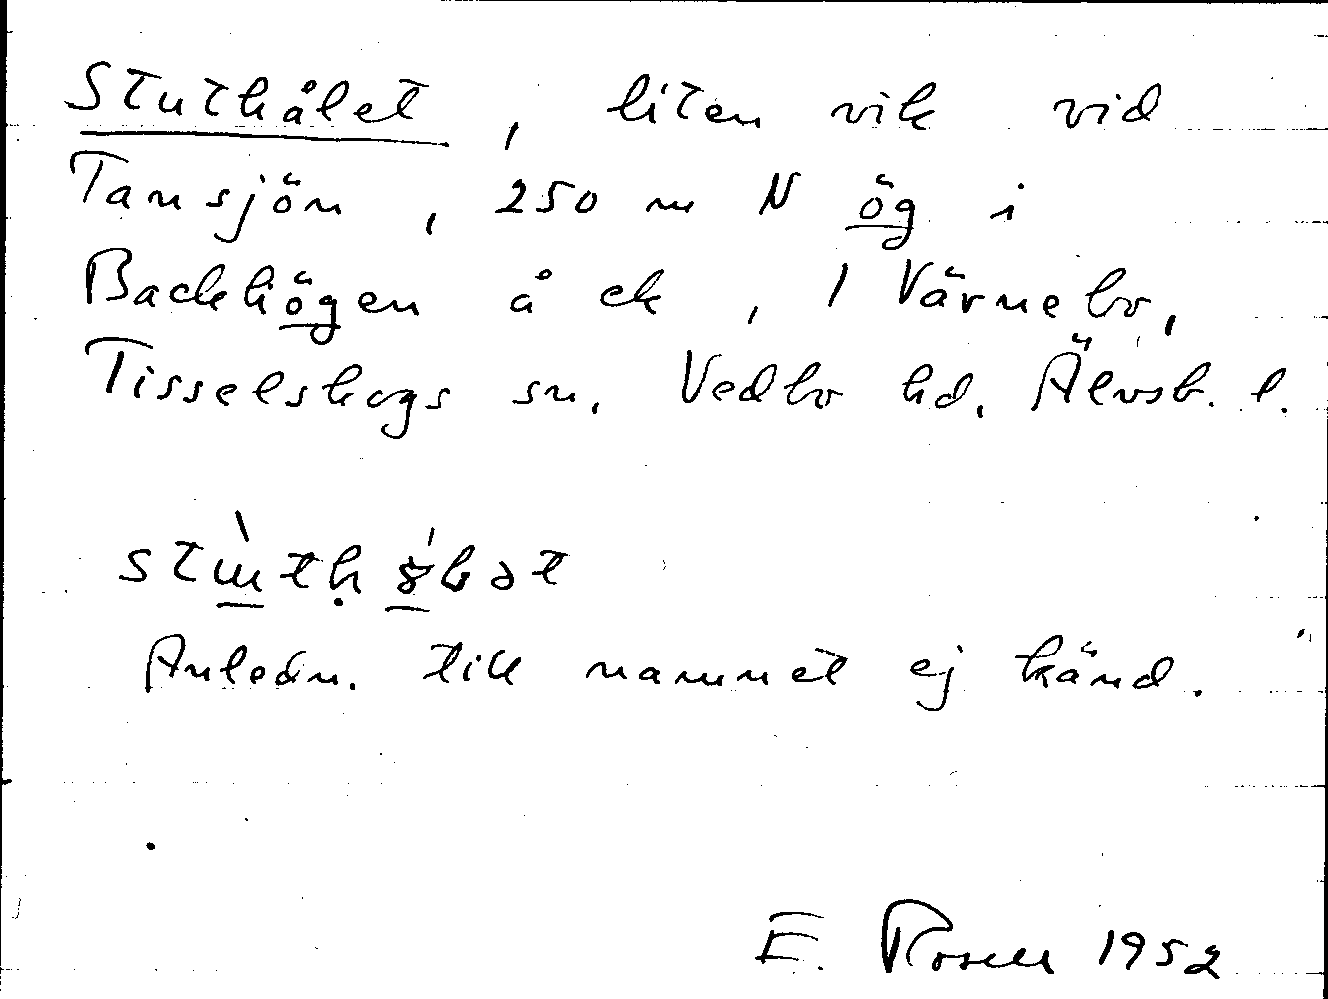 Stuthålet, liten vik vid
Tansjön, 250 m N ög i
Backhögen å ek, 1 Värnebo,
Tisselskogs sn, Vedbo hd, Älvsb. l.
Anledn. till namnet ej känd.
E. Rosell 1952